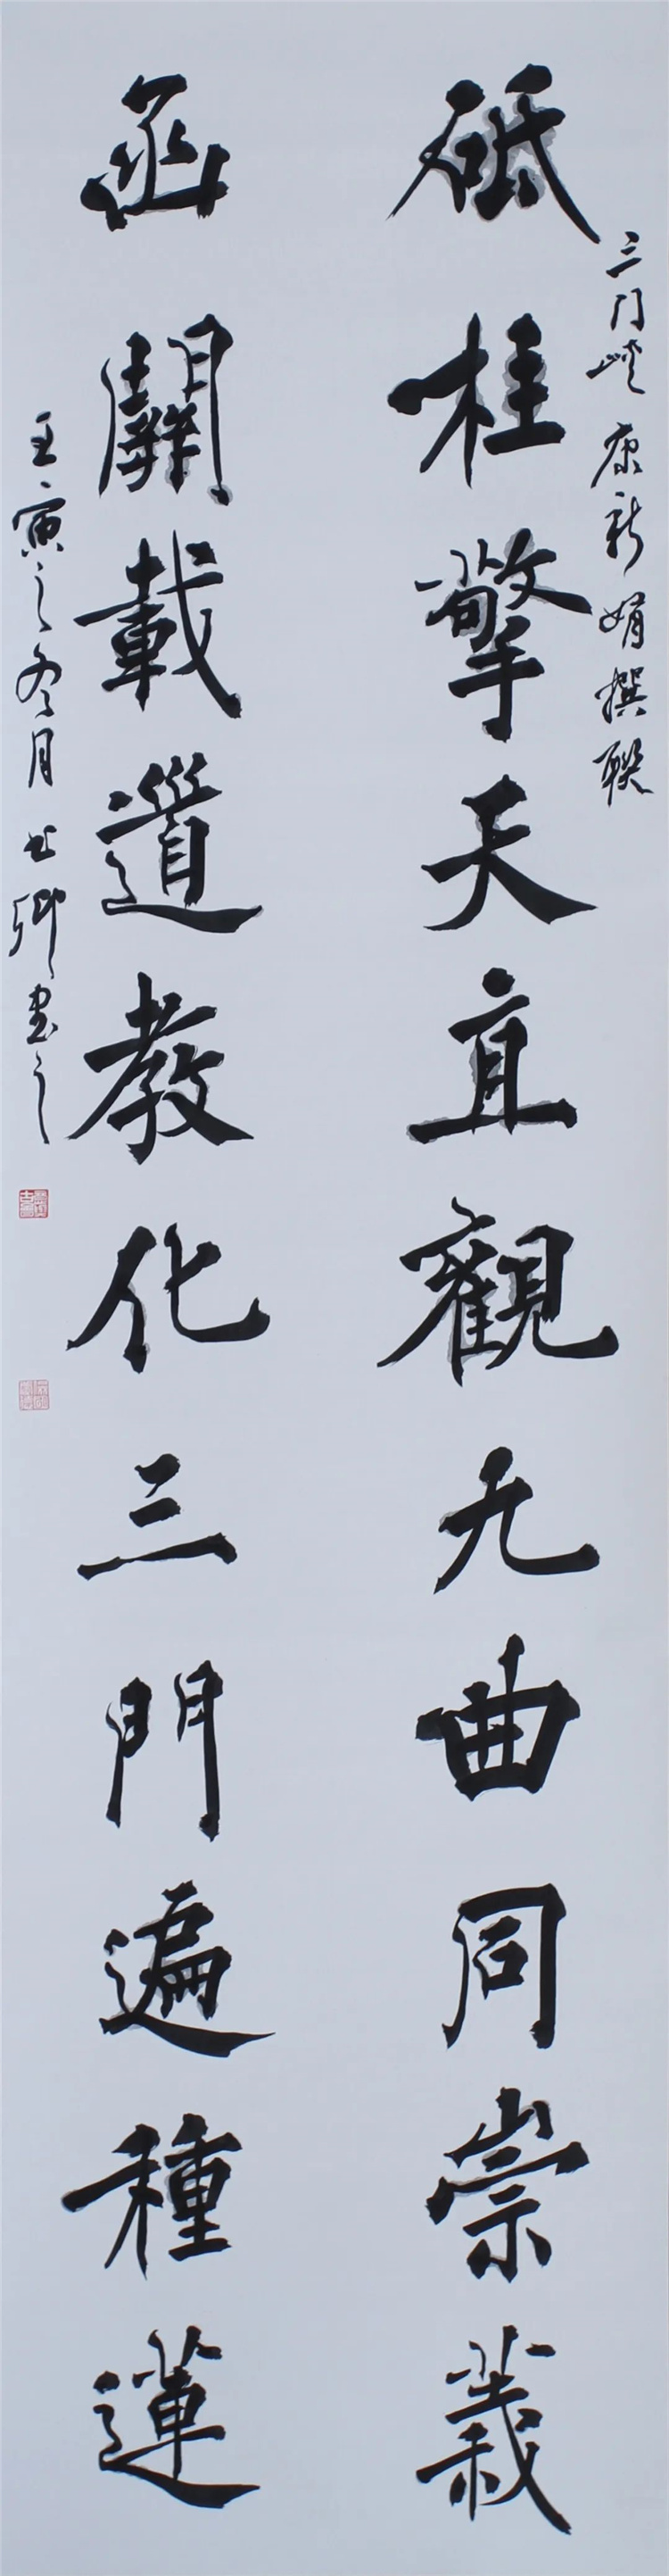 砥柱擎天直觀九曲同崇義
三门峡康新娟撰联
函關載道教化三門遍種蓮
壬寅之冬月
書之